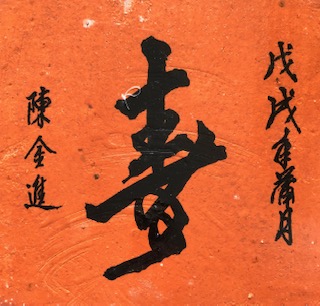 戊戌年蒲月
壽
陳金進